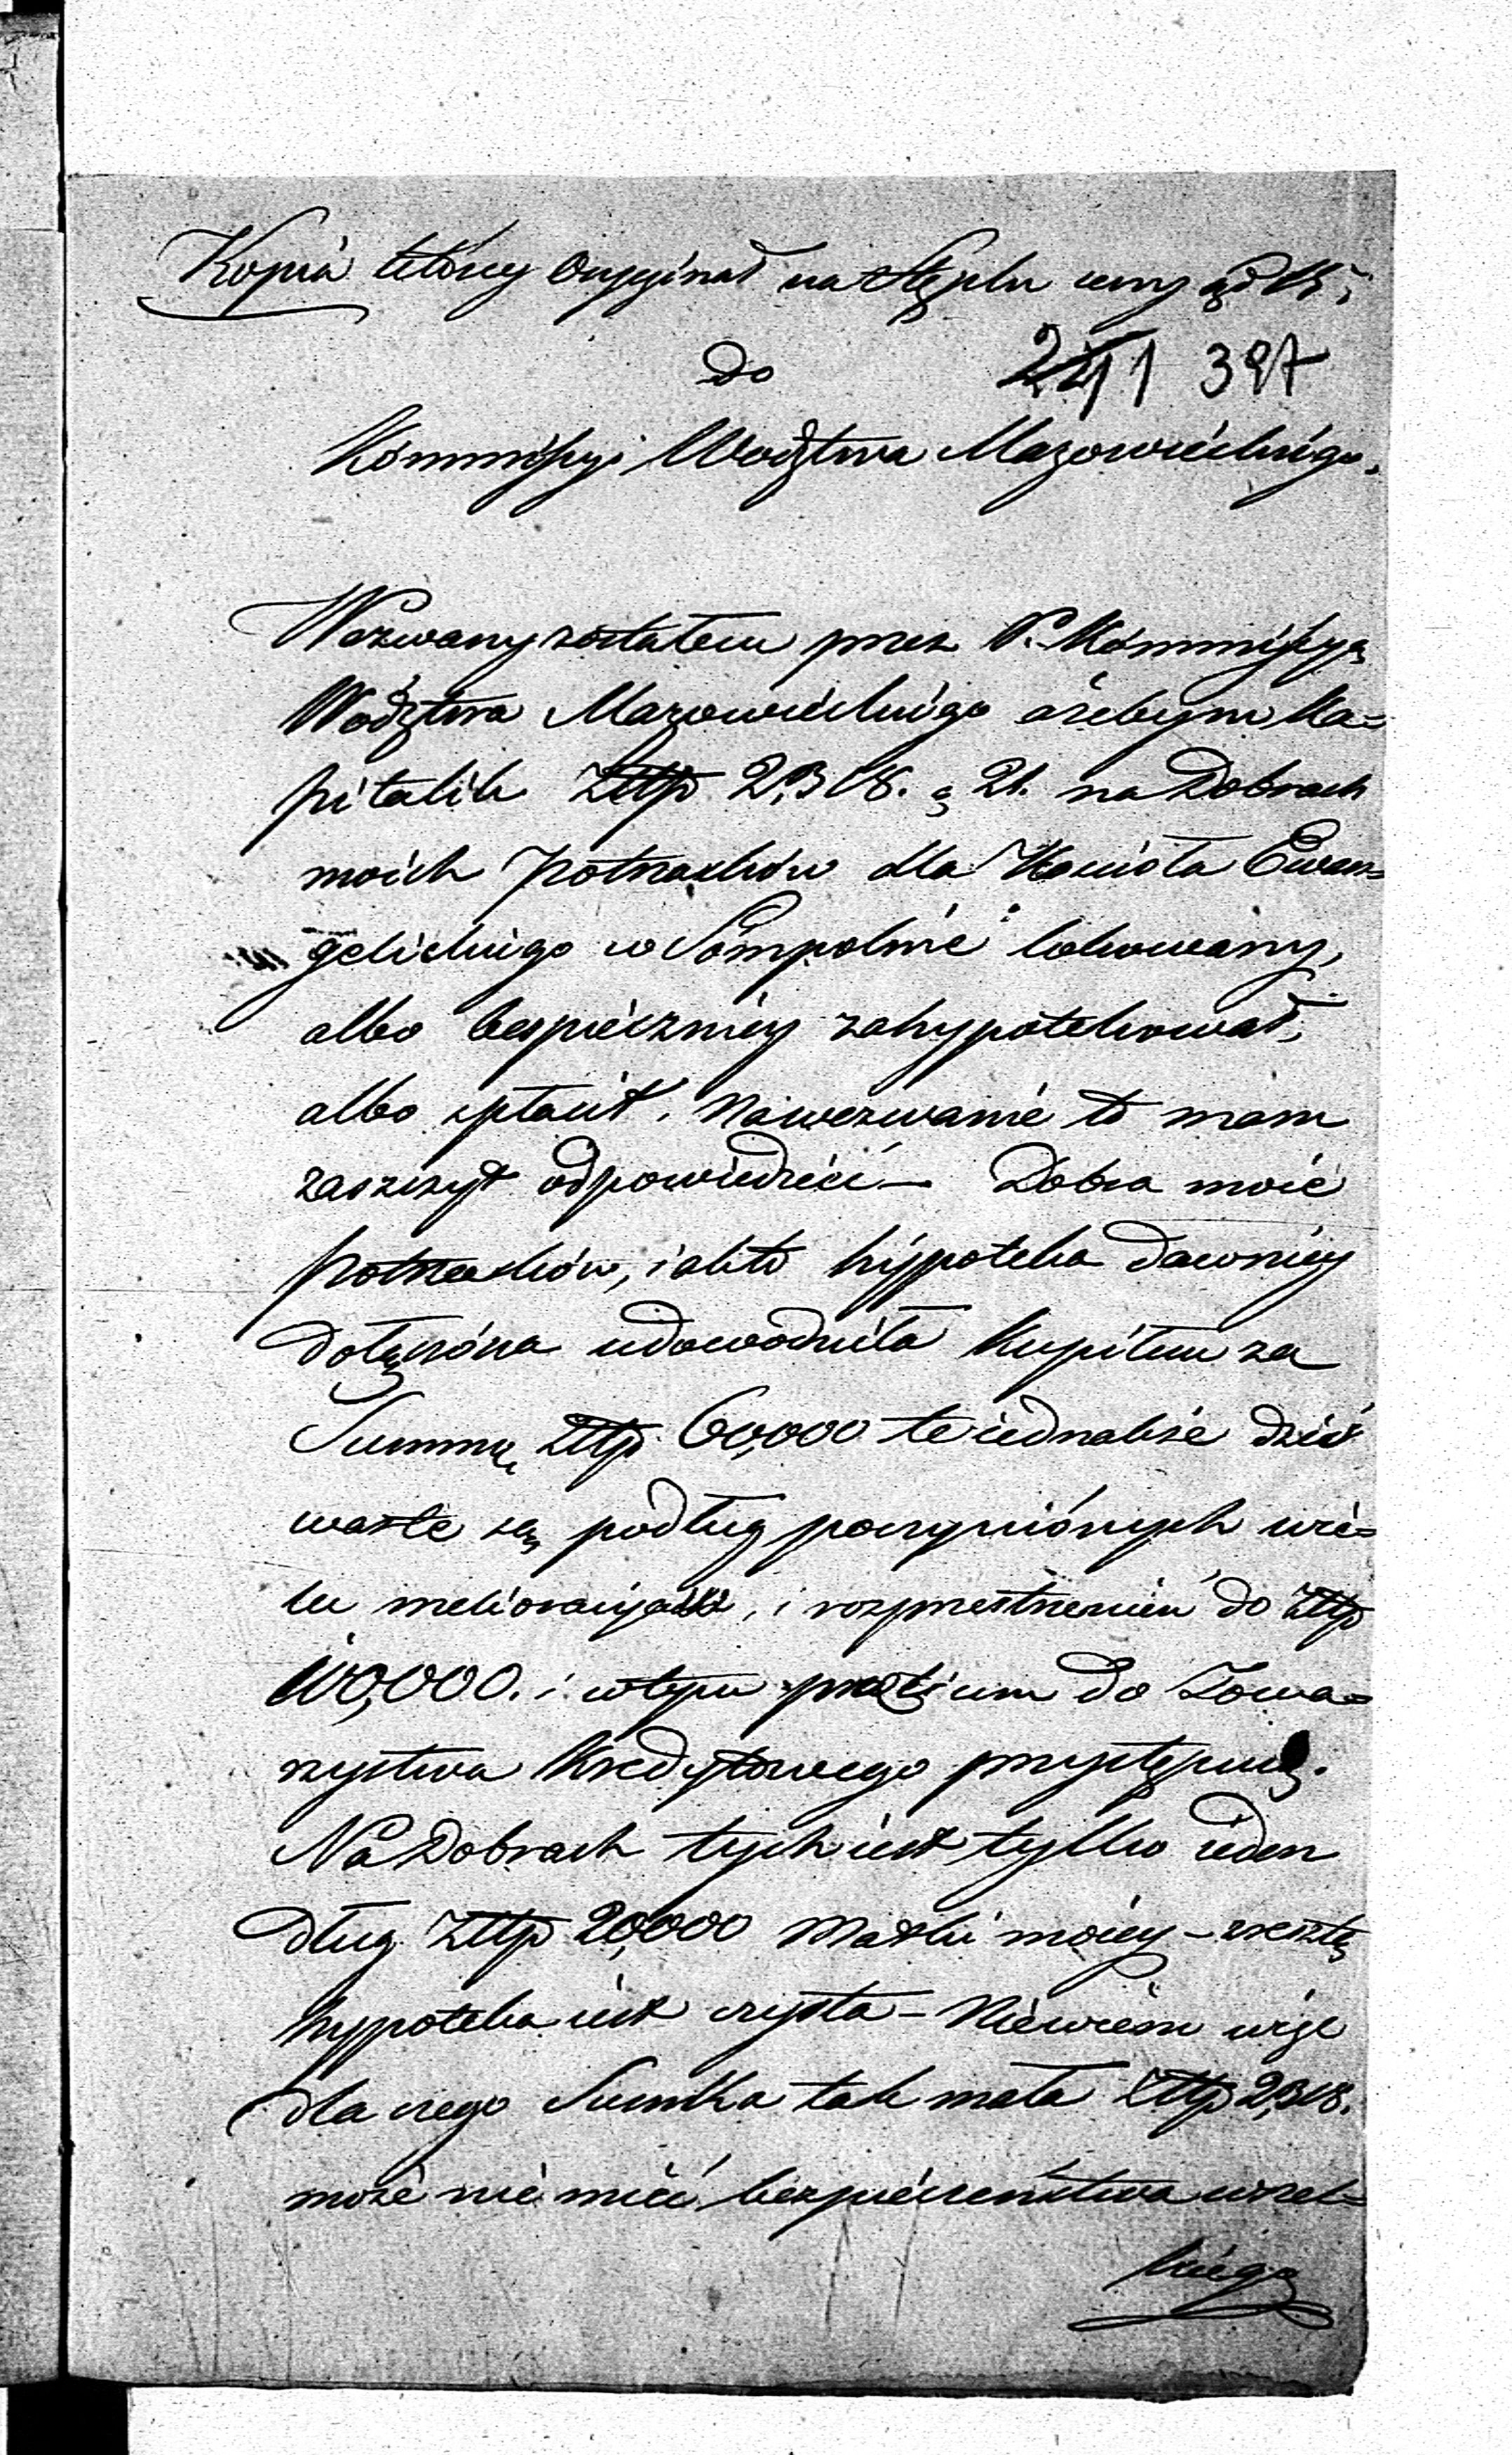 Kopia którey Oryginał na Stęplu ceny
do
241 397
Kommissyi Wodztwa Mazowieckiégo.
Wezwany zostałem przez P. Kommissyą
Wodztwa Mazowieckiégo ażebym Ka=
pitalik Złłtp 2,318. g 21. na Dobrach
moich Potrzasków dla Kościoła Ewan=
gelickiego w Sompolnie lokowany,
albo bespieczniey zahypotekował,
albo spłacił. Nawezwanie to mam
zaszczyt odpowiedzieć – Dobra moie
Potrzasków, iakto hypoteka dawniey
dołączóna udowodniła kupiłem za
Summę Złłtp 60,000 te iednakże dziś
warte są podług poczyniónych wie=
lu melioracyach, i rozprzestrzenień do Złłtp
100,000. i wtym pretium do Towa=
rzystwa Kredytowego przystępuię.
Na Dobrach tych iest tylko ieden
dług Złłtp 20,000 Matki moiey – zresztą
hypoteka iest czysta – Niewiem więc
dla czego Sumka tak mała Złłtp 2,318.
może nie mieć bezpieczeństwa wszel=
kiégo